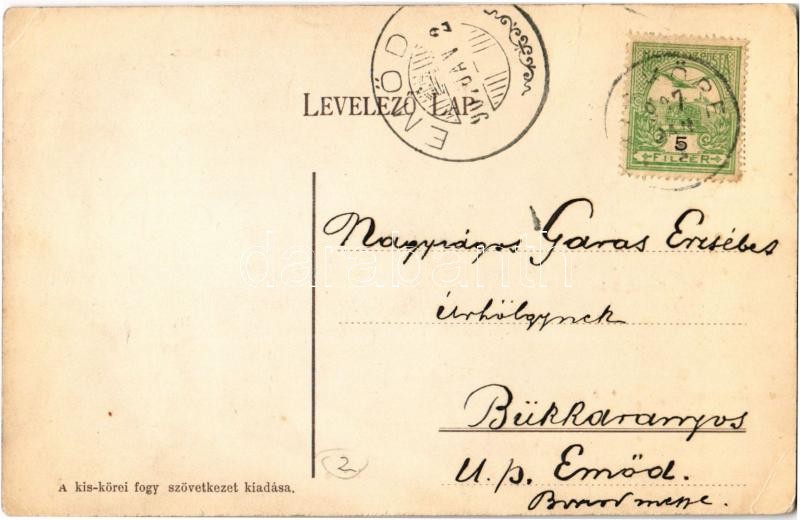 LEVELEZŐ LAP
EMŐD
MAGYAR POSTA
KÖRE
5
FILLÉR
Nagyságos Garas Erzsébet
úrhölgynek
Bükkaranyos
U. p. Emőd.
Borsodmegye.
2
A kis-körei fogy szövetkezet kiadása.
darabanth